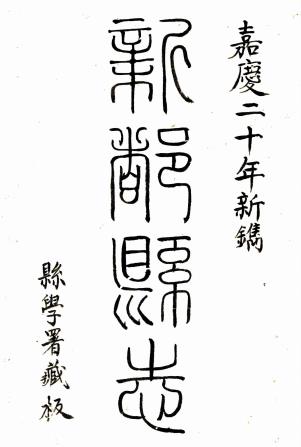 嘉慶二十年新鐫
新都縣志
縣學署藏板